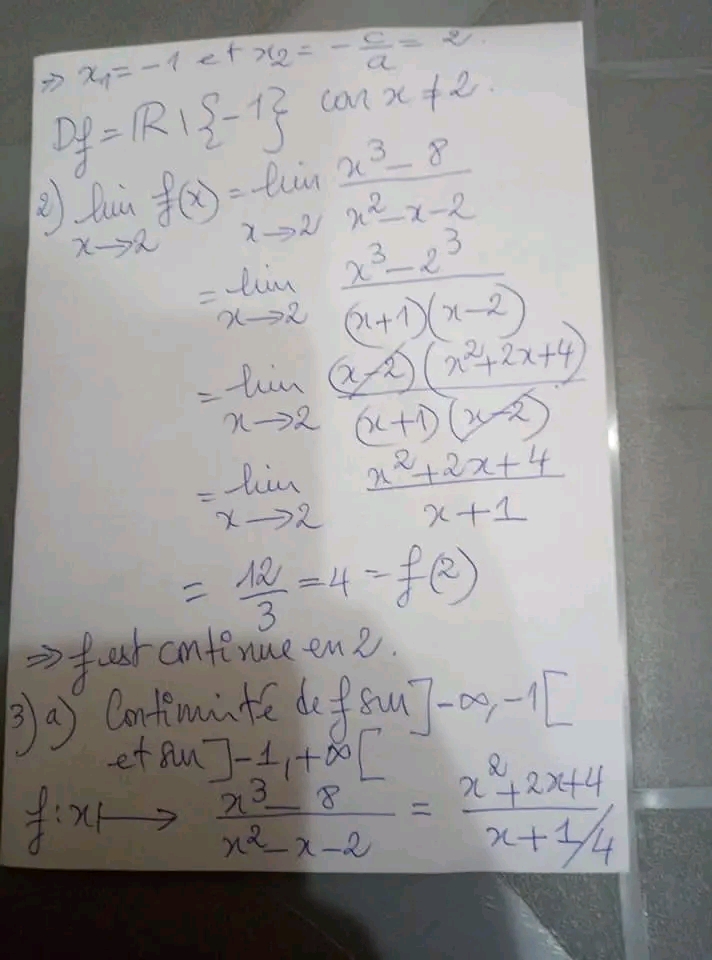 ⇒ x₁ = -1 et x₂ = -c/a = 2.
Df = ℝ \ {-1} car x ≠ 2.
2) lim x→2 f(x) = lim x→2 (x³ - 8)/(x² - x - 2)
= lim x→2 (x³ - 2³)/((x+1)(x-2))
= lim x→2 ((x-2)(x²+2x+4))/((x+1)(x-2))
= lim x→2 (x²+2x+4)/(x+1)
= 12/3 = 4 = f(2)
⇒ f est continue en 2.
3) a) Continuité de f sur ]-∞, -1[
et sur ]-1, +∞[
f : x ↦ (x³ - 8)/(x² - x - 2) = (x²+2x+4)/(x+1) /4